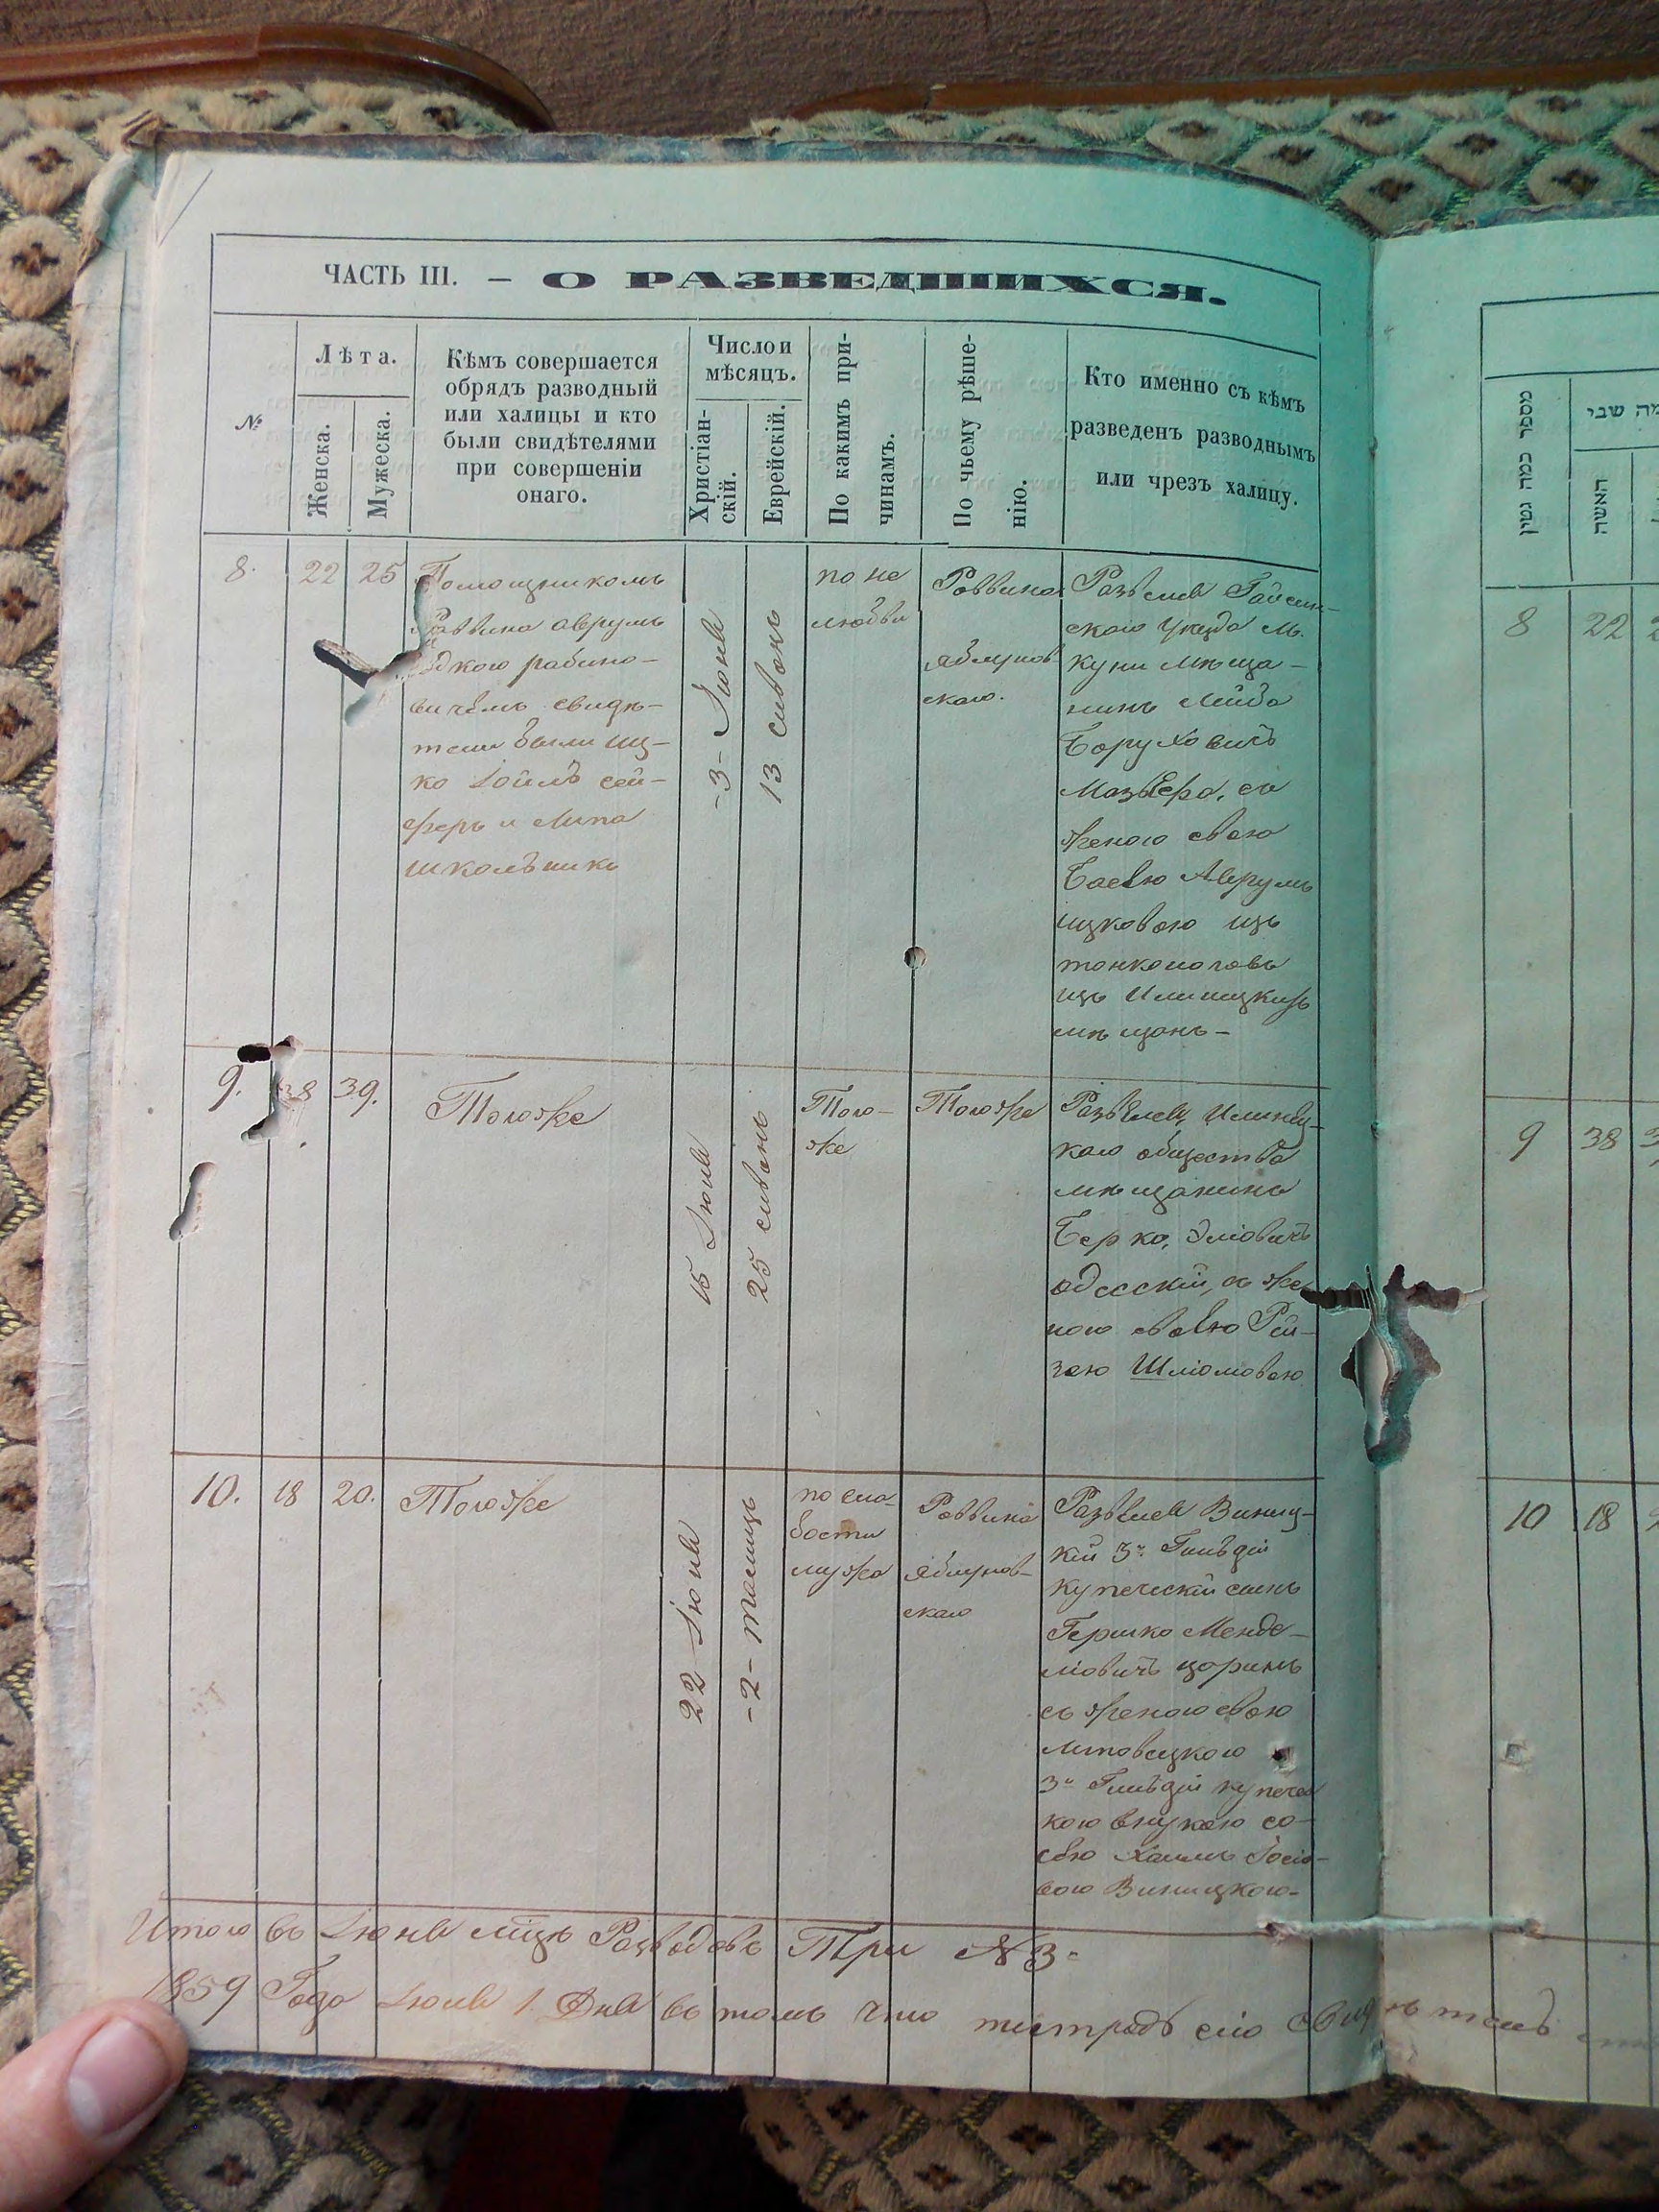 ЧАСТЬ III. — О РАЗВЕДШИХСЯ.
№
Лѣта.
Женска.
Мужеска.
Кѣмъ совершается
обрядъ разводный
или халицы и кто
были свидѣтелями
при совершеніи
онаго.
Число и
мѣсяцъ.
Христіан-
скій.
Еврейскій.
По какимъ при-
чинамъ.
По чьему рѣше-
нію.
Кто именно съ кѣмъ
разведенъ разводнымъ
или чрезъ халицу.
8.
22
25
Помощникомъ
Раввина аврумъ
рабино-
вичемъ свидѣ-
тели были иц-
ко Іойлъ сей-
феръ и Липа
школьникъ
-3- Іюня
13 сивонь
по не
любви
Раввина
яблунов
скаго.
Развелся Гайсин-
скаго уѣзда м.
куни мѣща-
нинъ Лейба
Боруховичъ
Мазѣра, съ
женою своею
Басею Аврумъ
ицковою изъ
изъ Илинецкихъ
мѣщанъ-
9.
38
39.
Тогоже
15 Іюня
25 сивонь
Того-
же
Тогоже
Развелся Илинец-
каго общества
мѣщанинъ
Берко, Эліовичъ
одесскій, съ же
ною своею Рей-
зею Шліомовою
10.
18
20.
Тогоже
22 Іюня
-2- тамицъ
по сла-
бости
мужа
Раввина
яблунов-
скаго
Развелся Винниц-
кій 3й Гильдіи
купеческій сынъ
Гершко Менде-
ліовичъ царинъ
съ женою своею
липовецкою
3й Гильдіи купечес
кою внукою со-
сею Хаимъ Іосіо-
вою Виницкою-
Итого въ Іюнѣ мцѣ Разводовъ Три № 3-
1859 Года Іюля 1. Дня въ томъ что тетрадь сію
מספר כמה גטין
מה שני
האשה
8
22
9
38
10
18